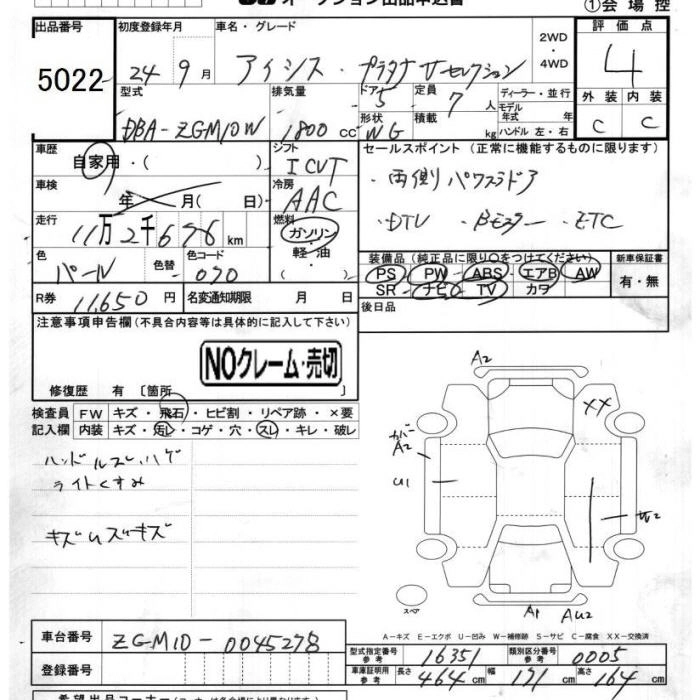 オークション出品申込書
①会場控
出品番号 初度登録年月 車名・グレード 2WD・4WD 評価点
5022 24 9月 アイシス・プラタナ Vセレクション 4
型式 排気量 ドア 5 定員 7人 ディーラー・並行 外装 内装
DBA-ZGM10W 1800cc 形状 WG 積載 kg モデル年式 年式 ハンドル 左・右 C C
車歴 自家用・( ) シフト ICVT セールスポイント (正常に機能するものに限ります。)
車検 年 月( 日) 冷房 AAC ・両側パワスラドア
走行 11万2千676km 燃料 ガソリン・軽・油 ( ) ・DTV ・Bモニター ・ETC
色 パール 色替 色コード 070 装備品 (純正品に限り○をつけてください) 新車保証書
PS PW ABS エアB AW 有・無
R券 11,650円 名変通知期限 月 日 SR ナビ TV カワ
注意事項申告欄 (不具合内容等は具体的に記入して下さい) 後日品
NOクレーム・売切
修復歴 有 〔箇所 〕
検査員 FW キズ・飛石・ヒビ割・リペア跡・×要
記入欄 内装 キズ・汚レ・コゲ・穴・スレ・キレ・破レ
ハンドルスレ、ハゲ
ライトくすみ
キズUズーキズ
A2
XX
カバー
A2
U1
W2
スペア
A1 AU2
A-キズ E-エクボ U-凹み W-補修跡 S-サビ C-腐食 XX-交換済
車台番号 ZGM10-0045278
型式指定番号 参考 16351 類別区分番号 参考 0005
登録番号 車庫証明用 参考 長さ 464cm 幅 171cm 高さ 164cm
希望出品コーナー